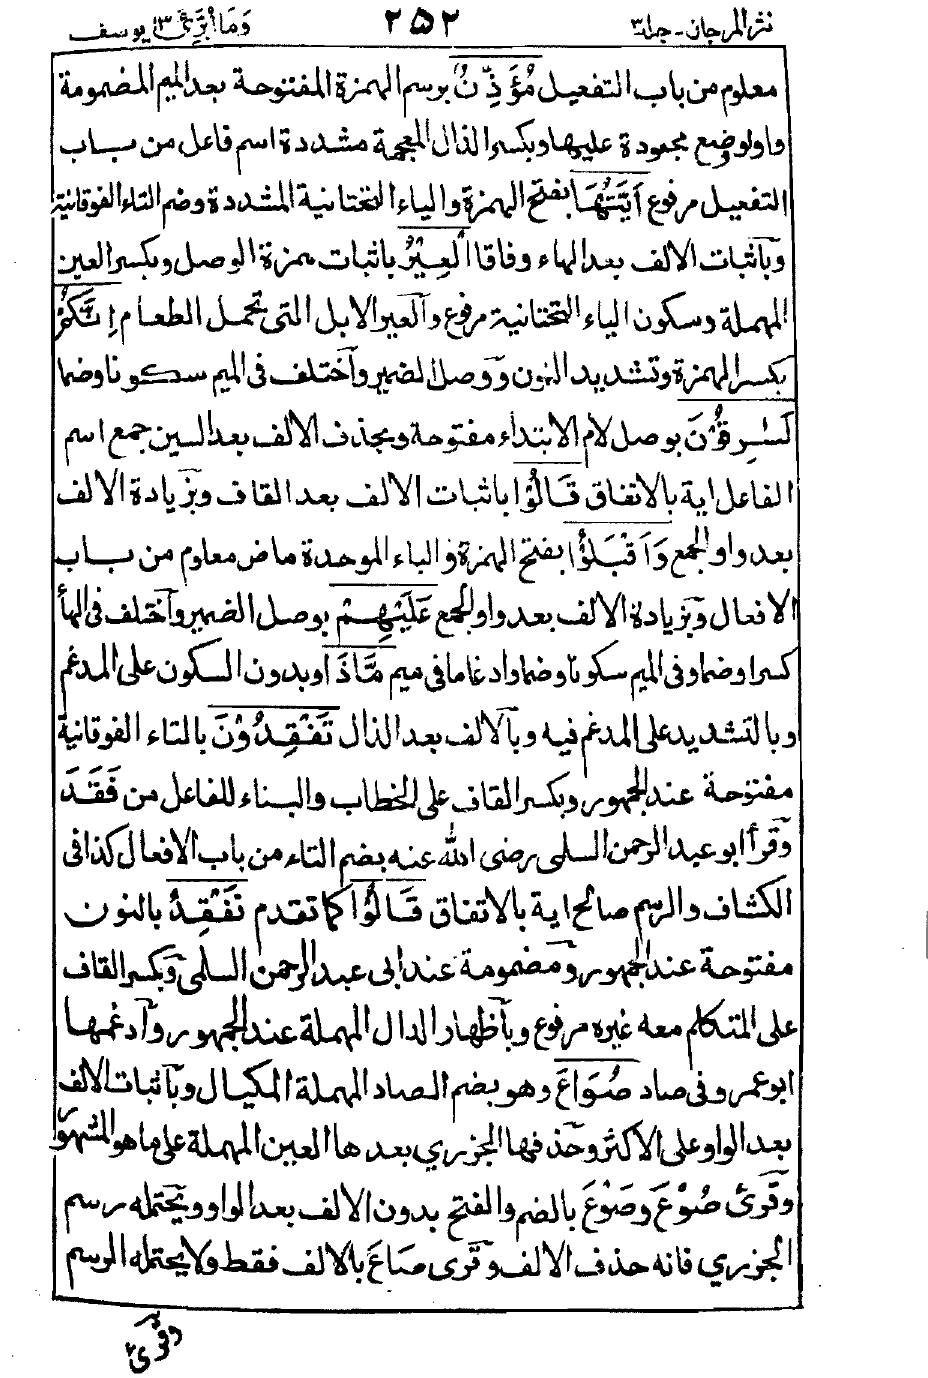 نثر المرجان - جلد ٣ ٢٥٢ وَمَا أُبَرِّئُ ١٣ يوسف
معلوم من باب التفعيل مُؤَذِّنٌ برسم الهمزة المفتوحة بعد الميم المضمومة
واو او وضع مجعودة عليها وبكسر الذال المعجمة مشددة اسم فاعل من باب
التفعيل مرفوع اَيَّتُهَا بفتح الهمزة والياء التحتانية المشددة وضم التاء الفوقانية
وبآثبات الالف بعد الهاء وفاقا الْعِيْرُ باثبات همزة الوصل وبكسر العين
المهملة وسكون الياء التحتانية مرفوع وآلعير الابل التى تحمل الطعام اِنَّكُمْ
بكسر الهمزة وتشديد النون ووصل الضمير وآختلف فى الميم سكونا وضما
لَسٰرِقُوْنَ بوصل لام الابتداء مفتوحة وبحذف الالف بعد السين جمع اسم
الفاعل اية بالاتفاق قَالُوْا باثبات الالف بعد القاف وبزيادة الالف
بعد واو الجمع وَاَقْبَلُوْا بفتح الهمزة والباء الموحدة ماض معلوم من باب
الافعال وبزيادة الالف بعد واو الجمع عَلَيْهِمْ بوصل الضمير وآختلف فى الهأ
كسرا وضما وفى الميم سكونا وضما وادغاما فى ميم مَّاذَا وبدون السكون على المدغم
وبالتشديد على المدغم فيه وبآلالف بعد الذال تَفْقِدُوْنَ بالتاء الفوقانية
مفتوحة عند الجمهور وبكسر القاف على الخطاب والبناء للفاعل من فَقَدَ
وقرأ ابو عبد الرحمن السلمى رضى الله عنه بضم التاء من باب الافعال كذا فى
الكشاف والرسم صالح اية بالاتفاق قَالُوْا كما تقدم نَفْقِدُ بالنون
مفتوحة عند الجمهور ومضمومة عند ابى عبد الرحمن السلمى وبكسر القاف
على المتكلم معه غيره مرفوع وبآظهار الدال المهملة عند الجمهور وآدغمها
ابو عمرو فى صاد صُوَاعَ وهو بضم الصاد المهملة المكيال وبآثبات الالف
بعد الواو على الاكثر وحذفها الجزري بعدها العين المهملة على ما هو المشهور
وقرئ صُوْعَ وصَوْعَ بالضم والفتح بدون الالف بعد الواو ويحتمله رسم
الجزري فانه حذف الالف وقرى صَاعَ بالالف فقط ولا يحتمله الرسم
وقرئ